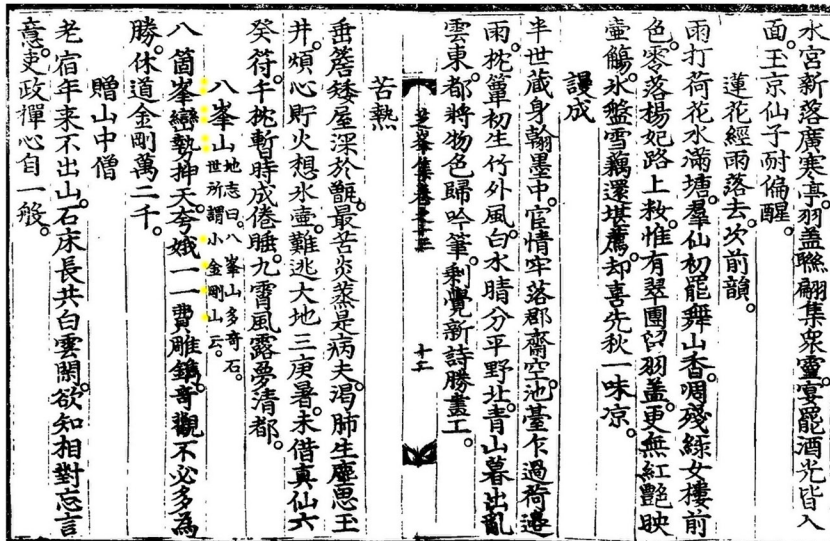 水宮新落廣寒亭。羽盖聯翩集衆靈。宴罷酒光皆入
面。玉京仙子耐偏醒。
蓮花經雨落去。次前韻。
雨打荷花水滿塘。羣仙初罷舞山香。凋殘綠女樓前
色。零落楊妃路上粧。惟有翠團留羽盖。更無紅艷映
壺觴。氷盤雪藕還堪薦。却喜先秋一味凉。
謾成
半世蔵身翰墨中。官情牢落郡齋空。池臺乍過荷邊
雨。枕簟初生竹外風。白水晴分平野北。青山暮出亂
雲東。都將物色歸吟筆。剩覺新詩勝畫工。
十二
苦熱
垂簷矮屋深於甑。最苦炎蒸是病夫。渴肺生塵思玉
井。煩心貯火想氷壺。難逃大地三庚暑。未借真仙六
癸符。千枕暫時成倦睡。九霄風露夢清都。
八峯山 地志曰。八峯山多奇石。
世所謂小金剛山云。
八箇峯巒勢抻天。夸娥一一費雕鐫。奇觀不必多為
勝。休道金剛萬二千。
贈山中僧
老宿年来不出山。石床長共白雲閑。欲知相對忘言
意。吏政禪心自一般。